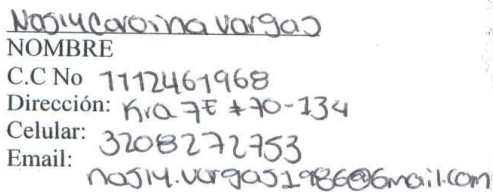 Nasly Carolina Vargas
NOMBRE
C.C No 1112461968
Dirección: Kra 7E #70-134
Celular: 3208272753
Email: nasly.vargas1986@Gmail.com